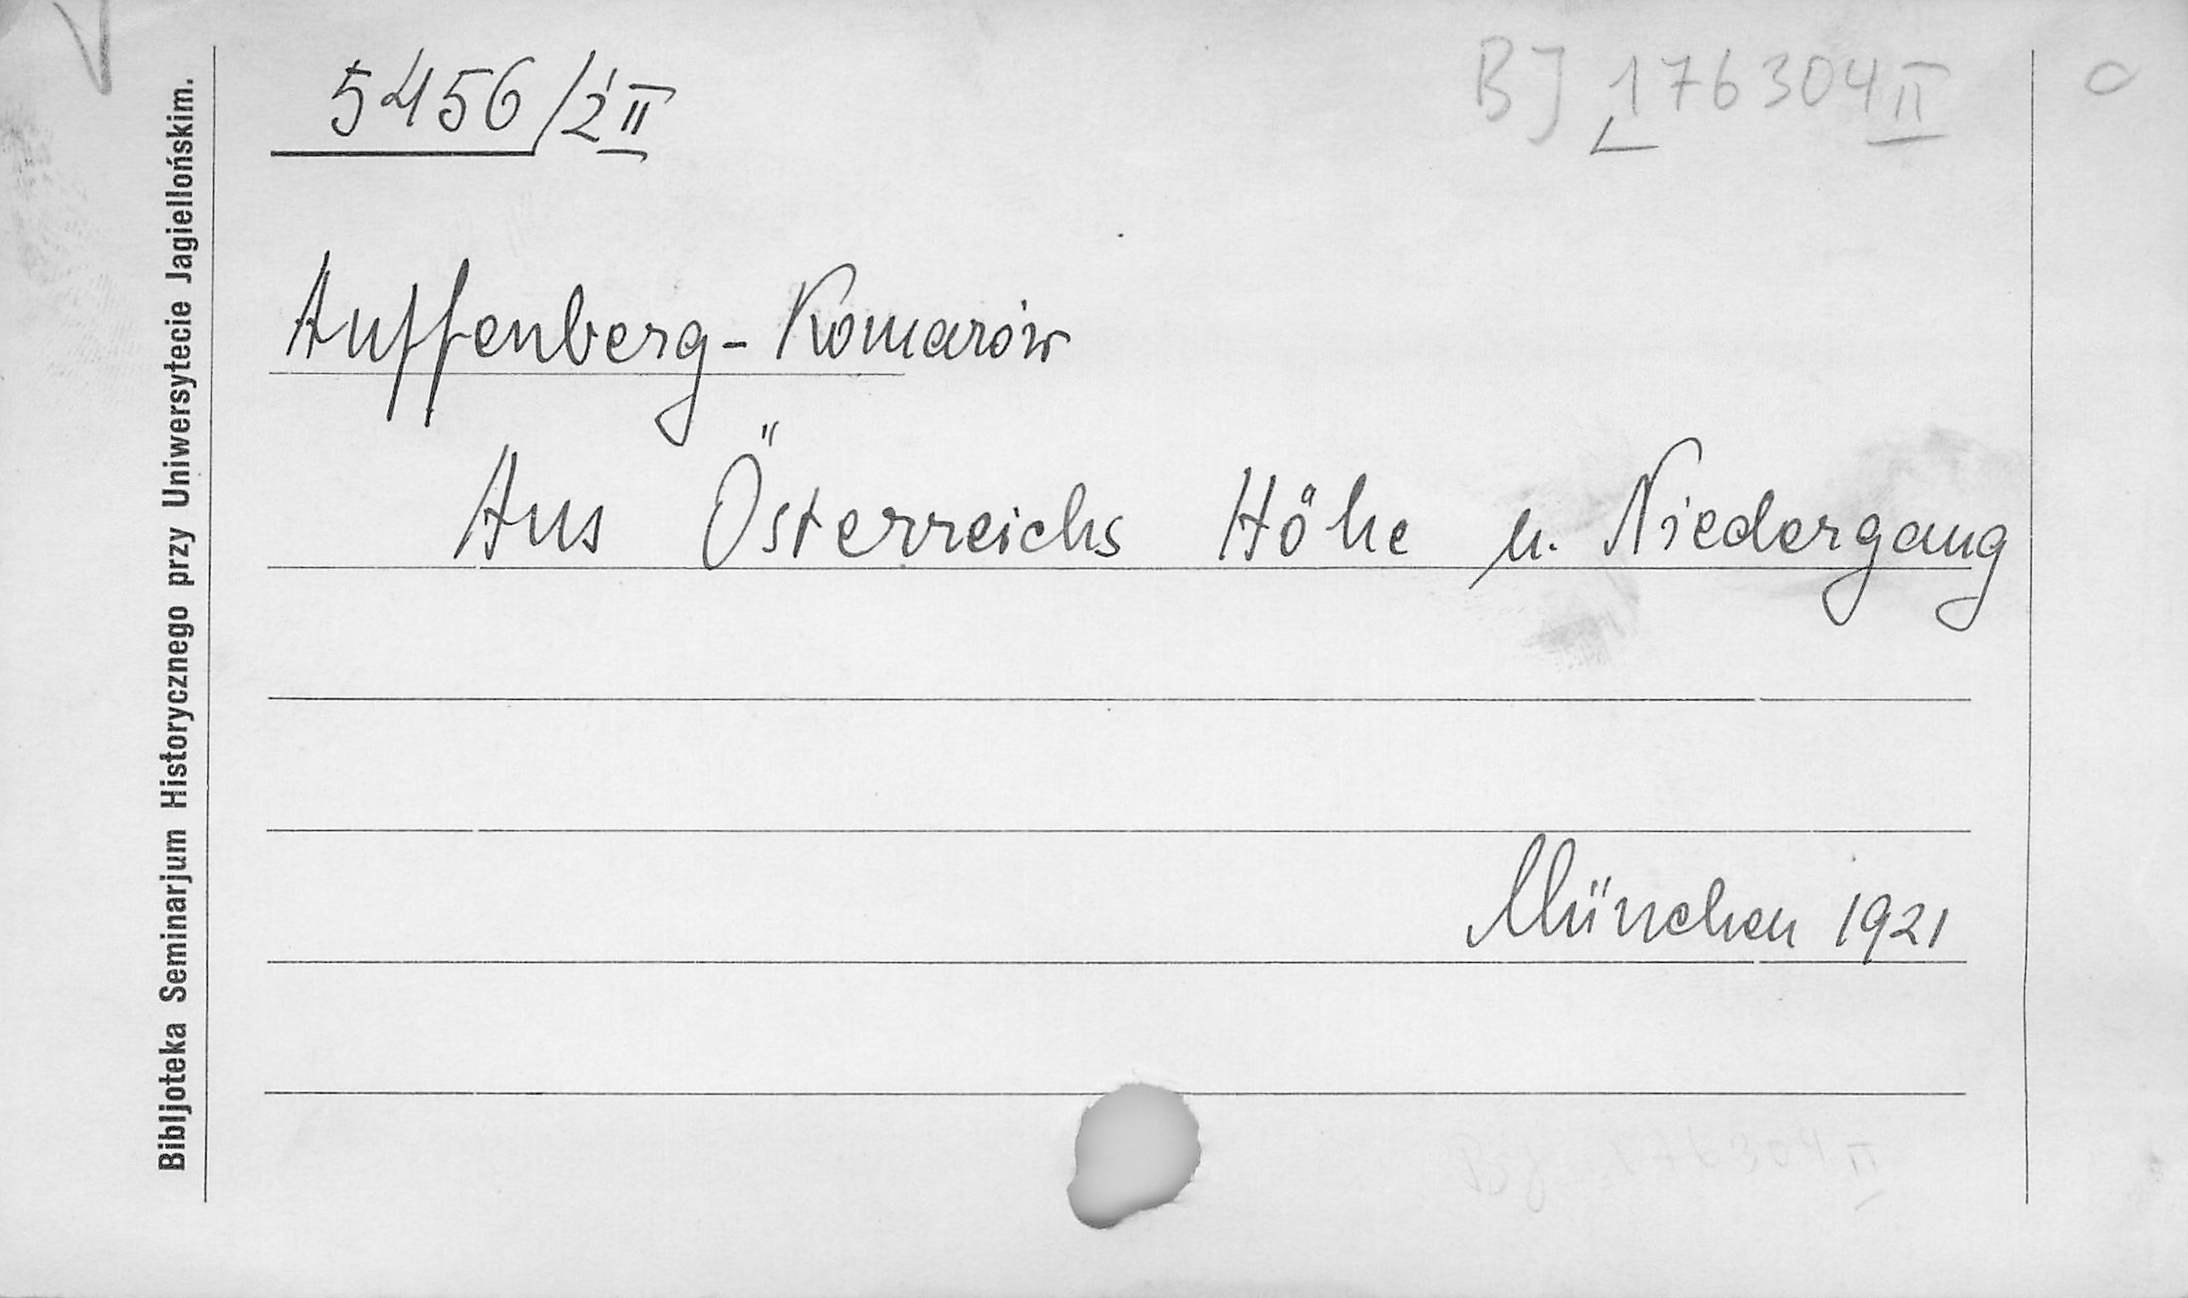 5456/2 II
BJ 176304 II
Auffenberg-Komarów
Aus Österreichs Höhe u. Niedergang
München 1921
BJ 176304 II
Bibljoteka Seminarjum Historycznego przy Uniwersytecie Jagiellońskim.